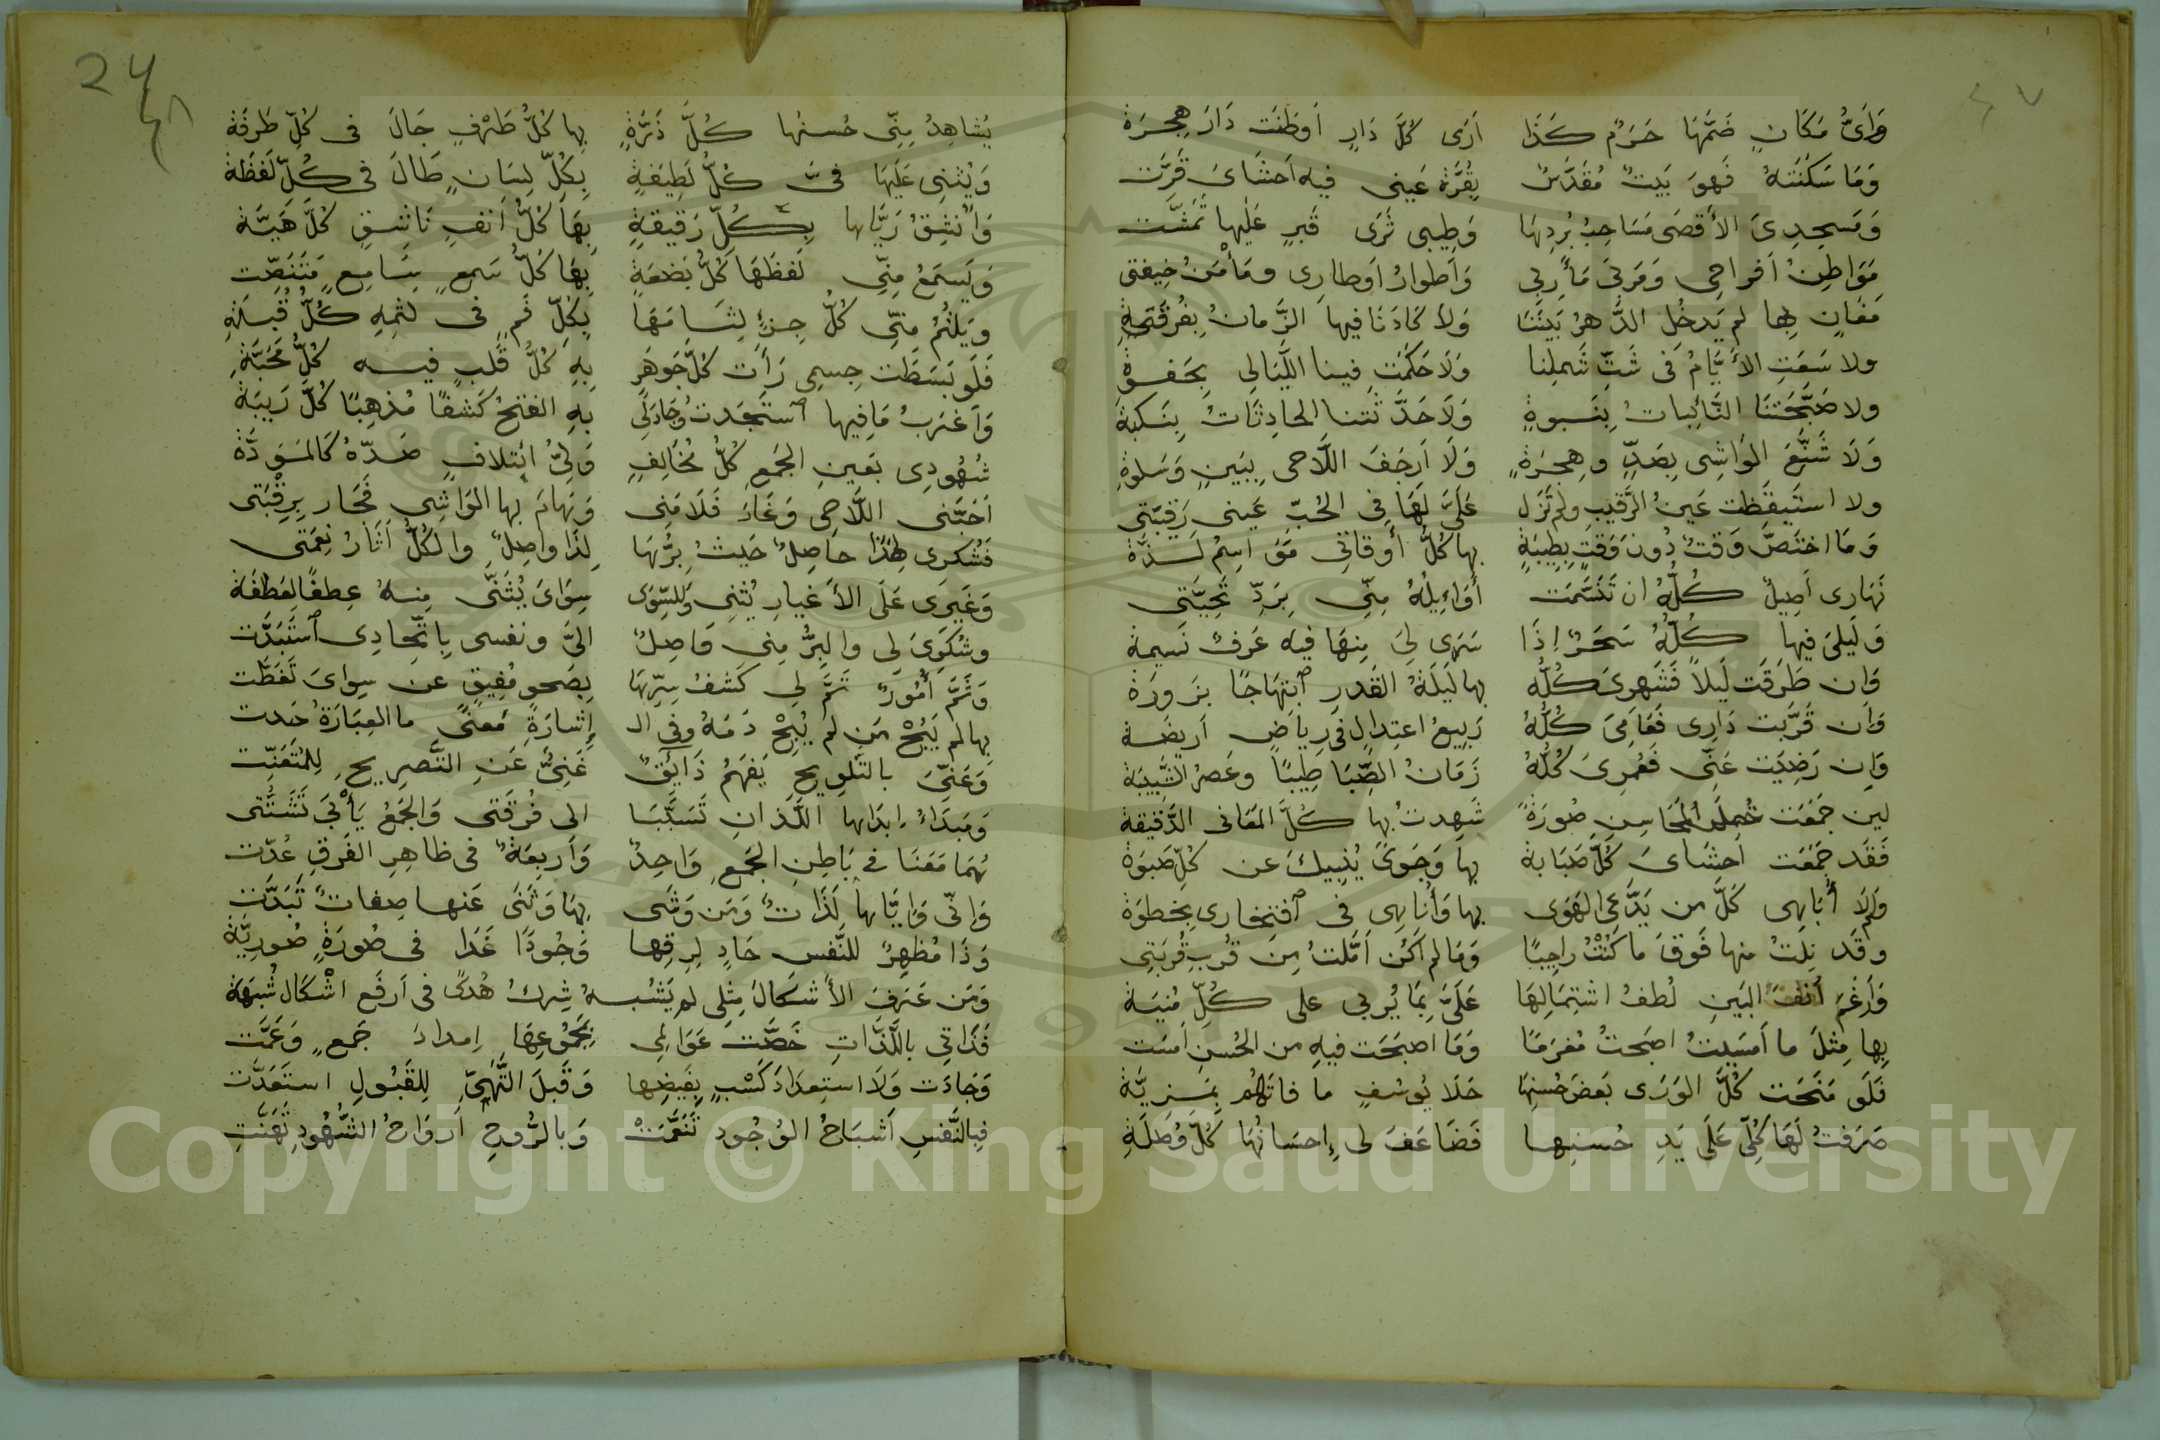 وَاَىُّ مَكَانٍ ضَمَّهَا حَرَمٌ كَذَا اَرَى كُلَّ دَارٍ اَوطَنَت دَارَ هِجرَة
وَمَا سَكَنَتهُ فَهوَ بَيتٌ مُقَدَّسٌ بِقُرَّة عَينى فيه اَحشَاىَ قَرَّت
وَمَسجِدِىَ الأَقصَى مَسَاحِبُ بُردِهَا وَطِيبى ثَرَى قَبرٍ عَلَيها تَمَشَّت
مَوَاطِنُ اَفراحِى وَمَربَى مَأرِبى وَاَطوَارُ اَوطارِى ومَأمَنُ خِيفتى
مَغَانٍ بِها لم يَدخُل الدَّهرُ بَينَنَا وَلَا كَادَنَا فيها الزَّمانُ بِفُرقَةِ
ولا سَعَتِ الأَيَّامُ فى شَتِّ شَملِنا وَلَا حَكَمَت فينا اللَّيَالِى بِجَفوَةٍ
ولا صَبَّحَتنَا النَّائِباتُ بِنَبوةٍ وَلَا حَدَّثَتنا الحادِثَاتُ بِنَكبَة
وَلَا شَنَّعَ الوَاشِى بِصَدٍّ وهِجرَةٍ وَلَا اَرجَفَ اللَّاحى بِبَينٍ وَسَلوةِ
ولا استَيقَظت عَينُ الرَّقيبِ ولم تَزَل عَلَىَّ لَهَا فِى الحُبّ عَينى رَقِيبَتى
وَمَا اختَصَّ وَقتٌ دُون وَقتٍ بِطِيبَةٍ بِها كُلُّ أَوقاتِى مَوَاسِمُ لَذَّة
نَهَارِى اَصِيلٌ كُلُّهُ ان تَنَسَّمَت أَوَائِلُهُ مِنِّى بِرَدِّ تَحِيَّتى
وَلَيلىَ فيها كُلُّهُ سَحَرٌ اِذَا سَرَى لِىَ مِنهَا فيه عَرفُ نَسيمة
وَاِن طَرَقَت لَيلاً فَشَهرِىَ كُلُّهُ بها لَيلَةُ القَدرِ ابتِهَاجًا بزَورَة
وَاَن قَرَّبَت دَارِى فَعَامِىَ كُلُّهُ رَبِيعُ اعتِدالٍ فى رِياَضٍ اَرِيضَة
وَاِن رَضِيَت عَنِّى فَعُمرِىَ كُلُّهُ زَمَانُ الصِّبَا طِيبًا وعَصرُ الشَّبِيبَة
لين جَمَعَت شملَ المَحَاسِنِ صُورَةً شَهِدتُ بِها كُلَّ المَعَانى الدَّقيقة
فَقَد جَمَعَت اَحشَاىَ كُلَّ صَبَابة بِها وَجَوىً يُنبِيكَ عن كُلِّ صَبوَة
وَلَم أُبَاهِى كُلَّ من يَدَّعى الهَوَى بِها وَأُنَاهِى فى افتخارى بِخطوَة
وقَد نِلتُ منها فَوقَ ما كُنتُ راجيًا وَمَا لم اَكُن اَمَّلتُ مِن قُربِ قُربَتِى
وَاَرغَمَ أَنفَ البَينِ لُطفُ اشتِمَالِهَا عَلَىَّ بِمَا يُربى على كُلِّ مُنيَة
بِها مِثلَ ما اَمسَيتُ اصبَحتُ مُغرَمًا وَمَا اصبَحَت فيهِ من الحُسنِ اَمسَت
فَلَو مَنَحَت كُلَّ الوَرَى بَعضَ حُسنِهَا خَلَا يُوسُفٍ ما فاتَهُم بِمَزيَّة
صَرَفتُ لَهَا كُلِّى عَلَى يَدِ حُسنِها فَضَاعَفَ لى إِحسَانُهَا كُلَّ وُصلَةِ
24
يُشاهِدُ مِنِّى حُسنَها كُلُّ ذَرَّةٍ بِها كُلُّ طَرْفٍ جَالَ فى كُلِّ طَرفَة
وَيُثنِى عَلَيهَا فىَّ كُلُّ لَطِيفَةٍ بِكُلّ لِسَانٍ طَالَ فى كُلِّ لَفظَة
وَاَنشِقُ رَيَّاها بِكُلِّ رَقيقةٍ بِهَا كُلُّ اَنفٍ نَاشِقٍ كُلَّ هَبَّة
وَيَسمَعُ مِنِّى لَفظَهَا كُلُّ بَضعَةٍ بِهَا كُلُّ سَمعٍ سَامِعٍ مَتَنَصِّت
ويَلثَمُ منِّى كُلُّ جزءٍ لِثَامَهَا بِكُلِّ فَمٍ فى لثمِهِ كُلُّ قُبلَةِ
فَلَو بَسَطَت جِسمِى رَأَت كُلَّ جَوهَرٍ بِهِ كُلُّ قَلبٍ فيه كُلُّ مَحَبَّةِ
وَاَغرَبُ مَا فيها استَجَدتُ وَجَادَلِى بِهِ الفتحُ كَشفًا مُذهِبًا كُلَّ رَيبَة
شُهُودِى بَعينِ الجَمعِ كُلَّ مُخَالِفٍ وَلِىَّ ائتِلافٍ صَدّهُ كَالمَوَدَّة
اَحَبَّنى اللَّاحِى وَغَارَ فَلَامَنى وَهَامَ بِها الوَاشِى فَجَار بِرِقْبَتى
فَشُكرِى لِهَذَا حاصِلٌ حَيثُ بِرُّهَا لِذَا واصِلٌ والكُلُّ آثَارُ نِعمَتى
وَغَيرِى عَلَى الأَغيارِ يُثنِى وَللسِّوَى سِوَاىَ يُثَنّى مِنهُ عِطفًا لِعَطفَة
وشُكرِىَ لِى والبِرُّ مِنى وَاصِلٌ الىَّ ونفسى بِاتِّحادِى استَبَدَّت
وَثَمَّ أُمُورٌ تَمَّ لِى كَشفُ سِترِهَا بِصَحوٍ مُفِيقٍ عن سِواىَ تَغَطَّت
بِها لَم يَبُحْ مَن لم يُبِحْ دَمَهُ وفى ال إِشارَةِ مَعنىً ما العِبَارَةُ حَدت
وَعَنِّىَ بالتَّلوِيحِ يَفهَمُ ذَايِقٌ غَنِىٌّ عَنِ التَّصرِيحِ لِلمُتَعَنِّت
وَمَبدَاءُ اِبدَاها اللَّذَانِ تَسَبَّبَا الى فُرقَتى وَالجَمعُ يَأبَى تَشَتُّتى
هُمَا مَعَنَا فى بَاطِنِ الجَمعِ وَاحِدٌ وَاَربعَةٌ فى ظاهِرِ الفَرقِ عُدّت
وَانّى وَايَّاها لَذَاتٌ وَمَن وَشَى بِهَا وَثَنَى عَنها صِفاتٌ تَبَدَّت
وَذَا مُظهِرٌ للنَّفس حَادٍ لِرِفقِها وَجُودًا غَدَا فى صُورَةٍ صُورِيَّة
وَمَن عَرَفَ الأَشكَالَ مِثلِى لم يَشُبهُ شِركُ هُدىً فى اَرفَعِ اشكَالِ شُبهَة
فَذَاتِى بالَّذَّاتِ خَصَّت عَوَالِمى بِمَجمُوعِهَا اِمدادَ جَمعٍ وَعَمَّت
وَجَادَت وَلَا استِعدَادَ كَسْبٍ بِفَيضِها وَقَبلَ التَّهَىِّ لِلقَبُولِ استَعَدَّت
فبالنَّفسِ اَشبَاحُ الوُجُودِ تَنَعَّمَتْ وَبالرُّوحِ اَروَاحُ الشُّهُودِ تَهَنَّتِ
Copyright © King Saud University